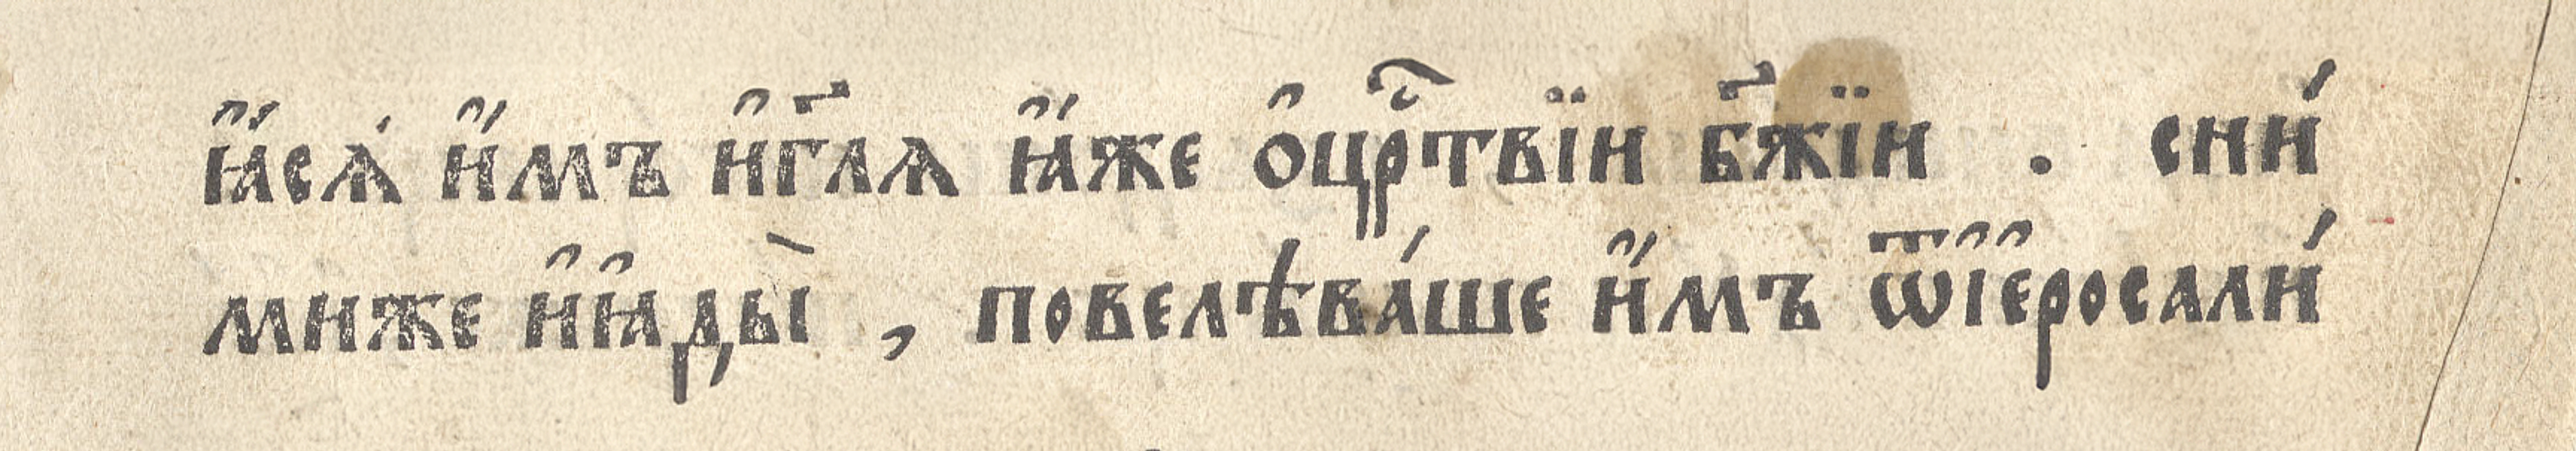 ꙗ҆́сѧ́ и҆́мъ и҆гл҃ѧ ꙗ҆́же о҆црⷭ҇твїи бж҃їи . сни́
миже и҆ꙗ҆ды̀ , повелѣва́ше и҆́мъ ѿі҆е҆росали́